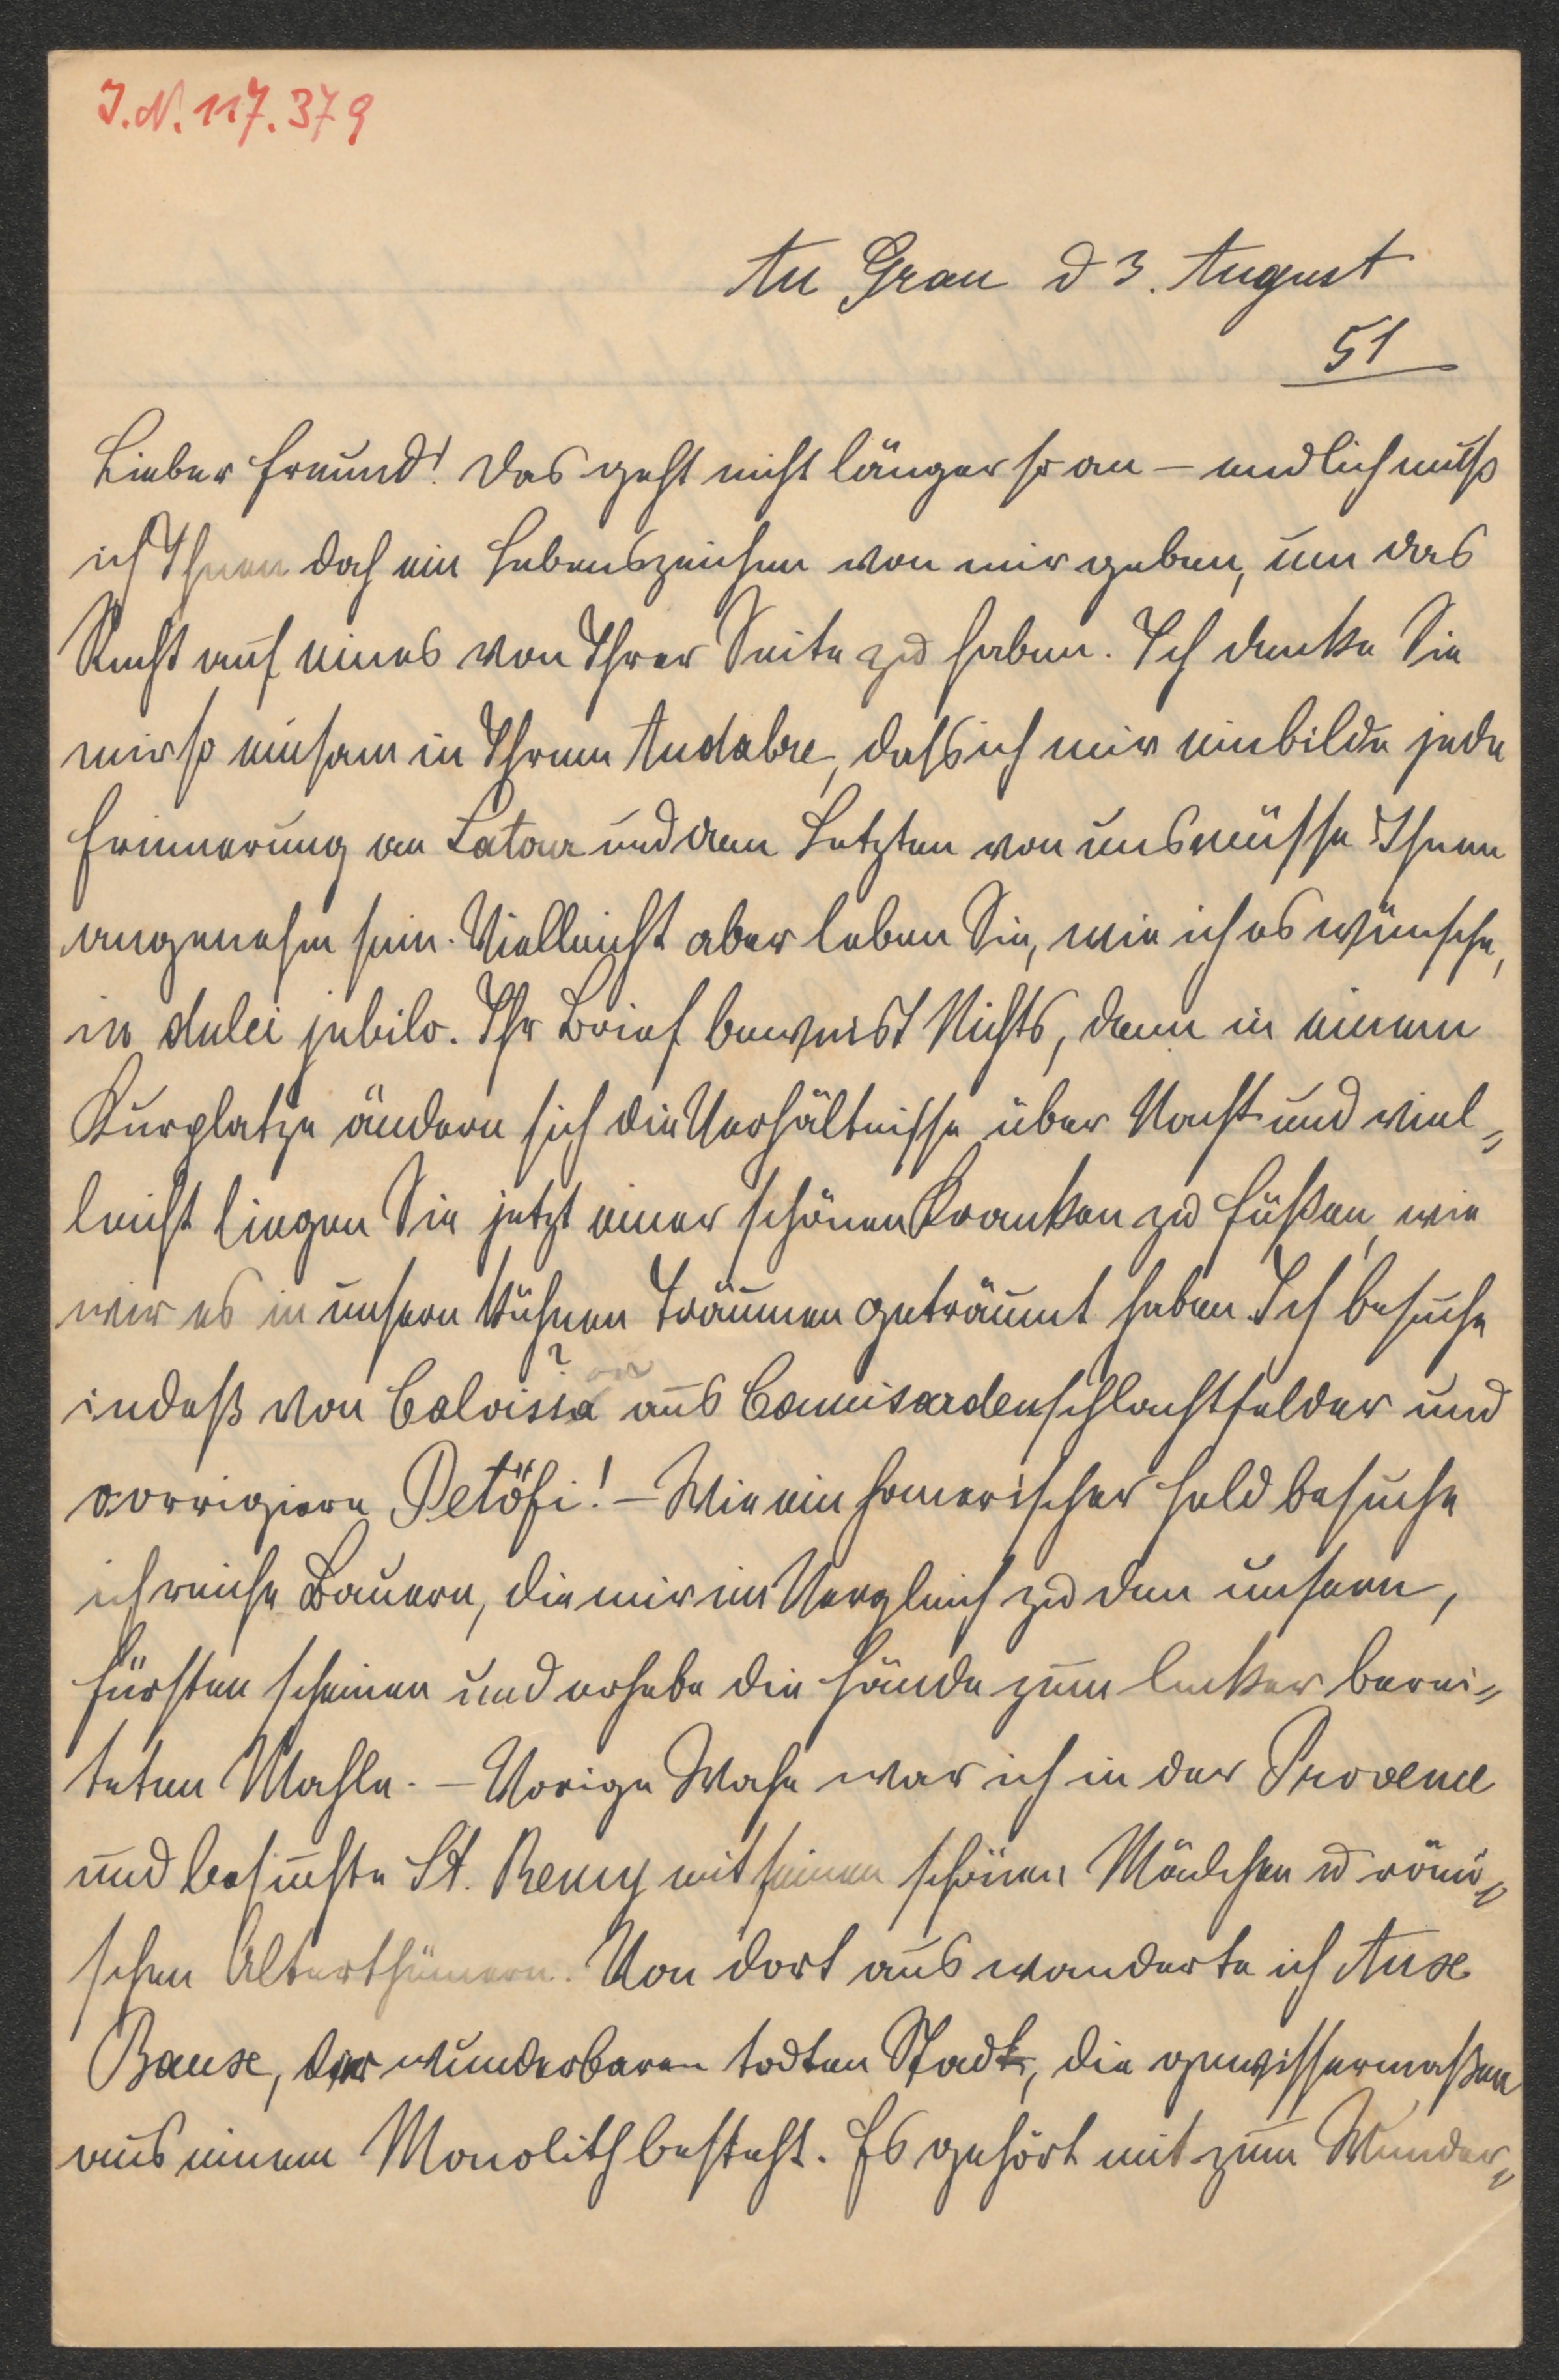 I.N. 117.379
Au Grau d 3. August
51
Lieber Freund! Das geht nicht länger so an – endlich muß
ich Ihnen doch ein Lebenszeichen von mir geben, um das
Recht auf eines von Ihrer Seite zu haben. Ich denke Sie
mir so einsam in Ihrem Andabre, daß ich mir einbilde jede
Erinnerung an Latour und den Letzten von uns müsse Ihnen
angenehm sein. Vielleicht aber leben Sie, wie ich es wünsche,
in dulci jubilo. Ihr Brief beweist Nichts, denn in einem
Kurplatze ändern sich die Verhältnisse über Nacht und viel=
leicht liegen Sie jetzt einer schönen Kranken zu Füßen, wie
wir es in unsern kühnen Träumen geträumt haben. Ich besuche
indeß von Calvissa aus Camisardenschlachtfelder und
corrigiere Petöfi! – Wie ein homerischer Held besuche
ich reiche Bauern, die mir im Vergleich zu den unsern,
Fürsten scheinen und erhebe die Hände zum lecker berei=
teten Mahle. – Vorige Woche war ich in der Provence
und besuchte St. Remy mit seinen schönen Mädchen u römi=
schen Alterthümern. Von dort aus wanderte ich Aux
Baux, der wunderbaren todten Stadt, die gewissermaßen
aus einem Monolith besteht. Es gehört mit zum Wunder=